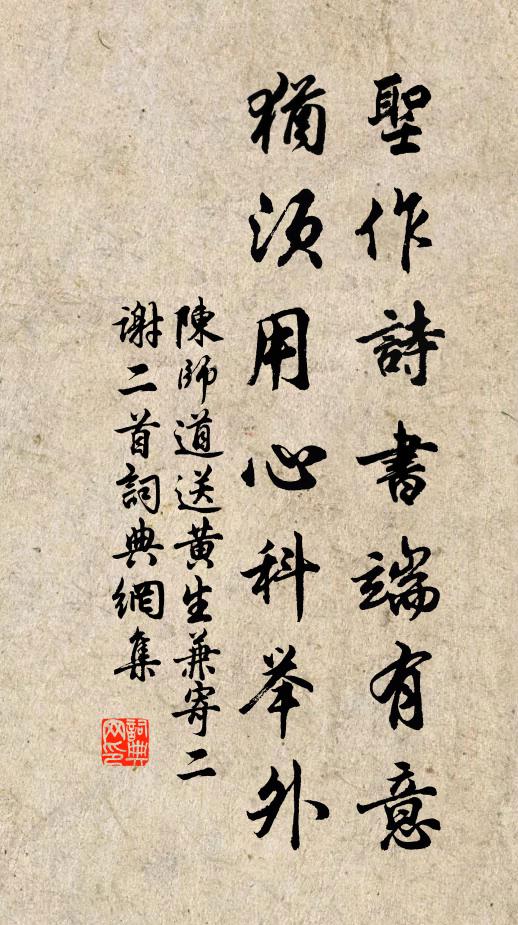 聖作詩書端有意
猶須用心科举外
陳師道送黄生兼寄二
謝二首詞典網集
詞典
网印